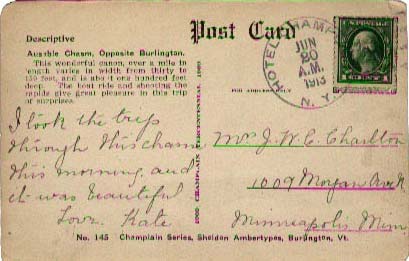 Descriptive
Ausable Chasm, Opposite Burlington.
This wonderful canon, over a mile in
length varies in width from thirty to
150 feet, and is about one hundred feet
deep. The boat ride and shooting the
rapids give great pleasure in this trip
of surprises.
Post Card
HOTEL CHAMPLAIN
JUN
20
A.M.
1913
N.Y.
FOR ADDRESS ONLY
1609 CHAMPLAIN TERCENTENNIAL 1909
I took the trip
through this chasm
this morning and
it was beautiful
Love. Kate
Mrs J. W. C. Charlton
1009 Morgan Ave N
Minneapolis Minn
No. 145 Champlain Series, Sheldon Ambertypes, Burlington, Vt.